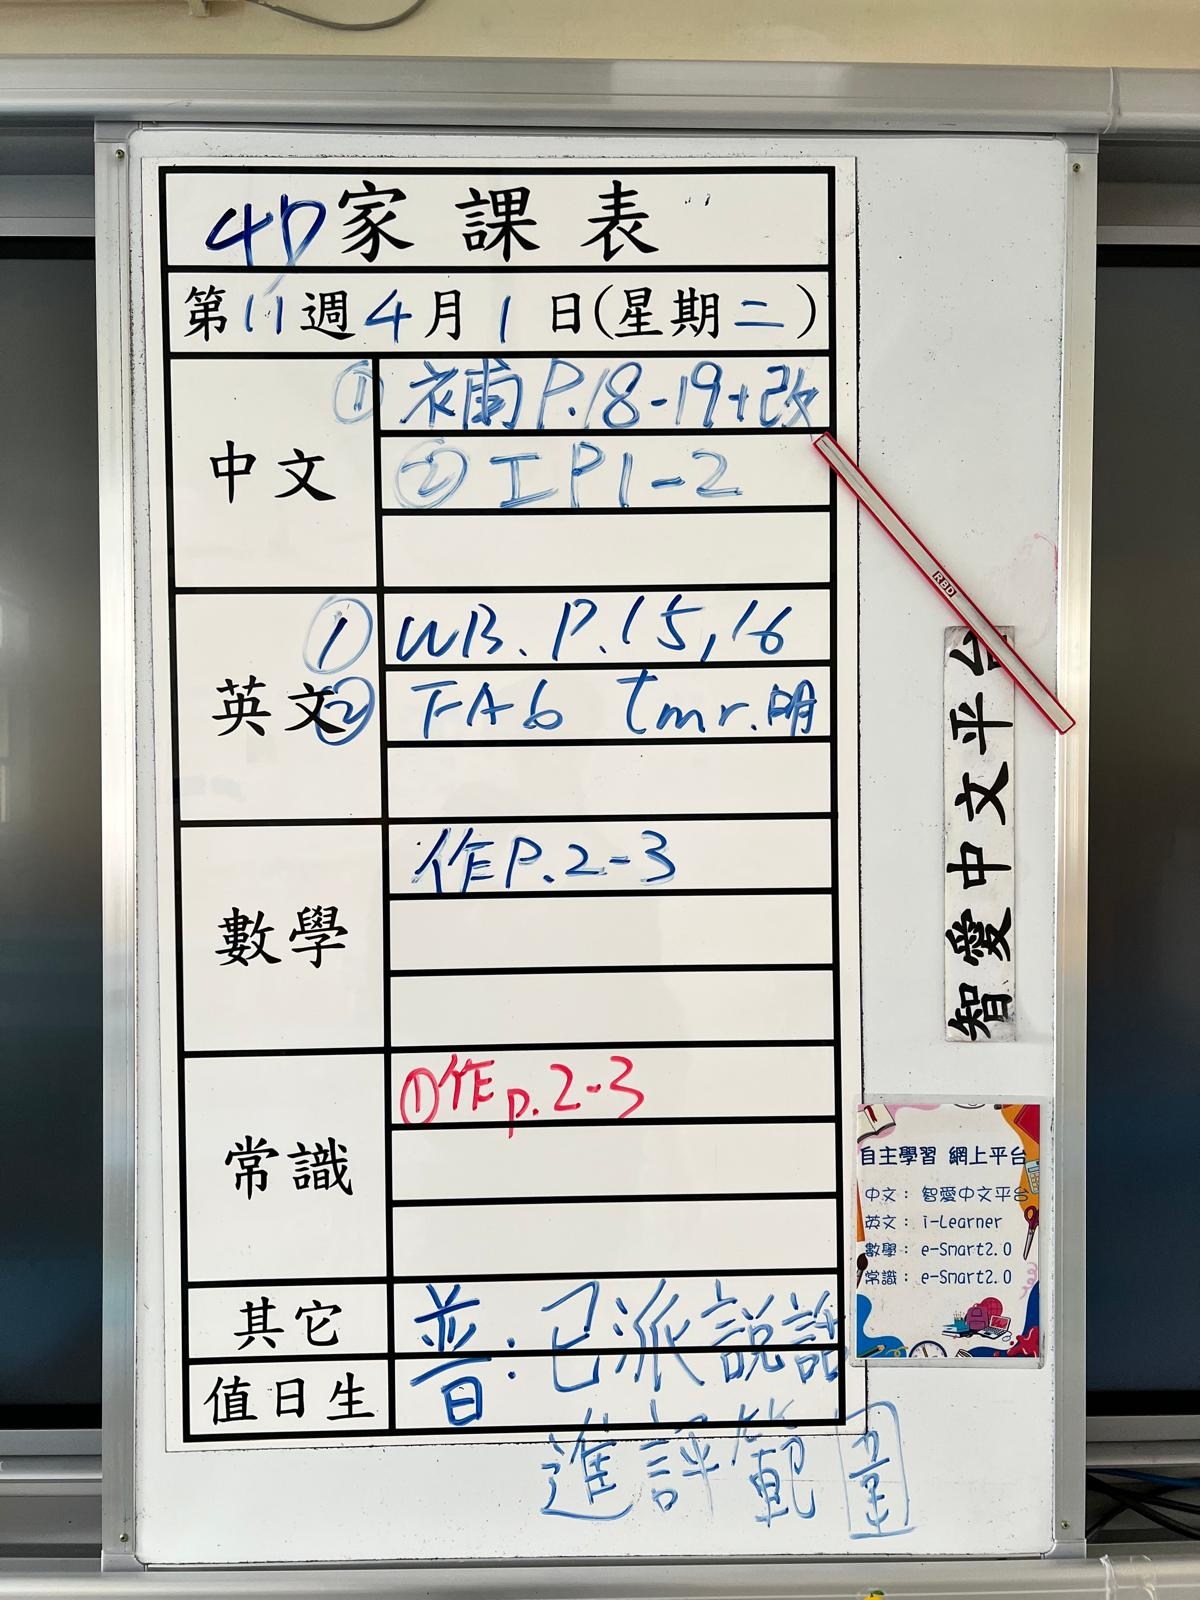 4D家課表
第11週4月1日(星期二)
中文
① 補P.18-19+改
② 工P1-2
英文
① WB. P.15,16
② FA6 tmr.明
數學
作P.2-3
常識
①作p.2-3
其它
普：已派說話
進評範圍
值日生
RBD
智愛中文平台
自主學習 網上平台
中文： 智愛中文平台
英文： i-Learner
數學： e-Smart2.0
常識： e-Smart2.0